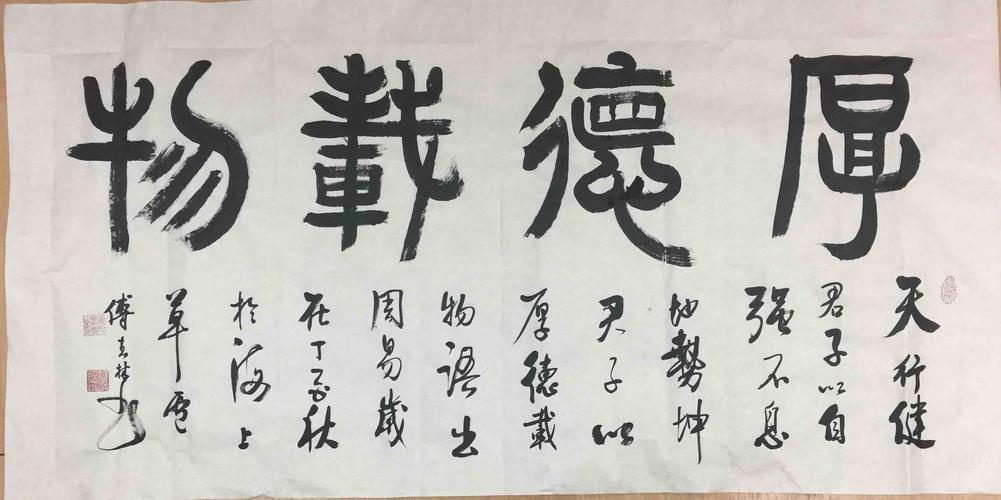 厚德載物
天行健
君子以自
強不息
地勢坤
君子以
厚德載
物語出
周易歲
在丁酉秋
於海上
草廬
傅書